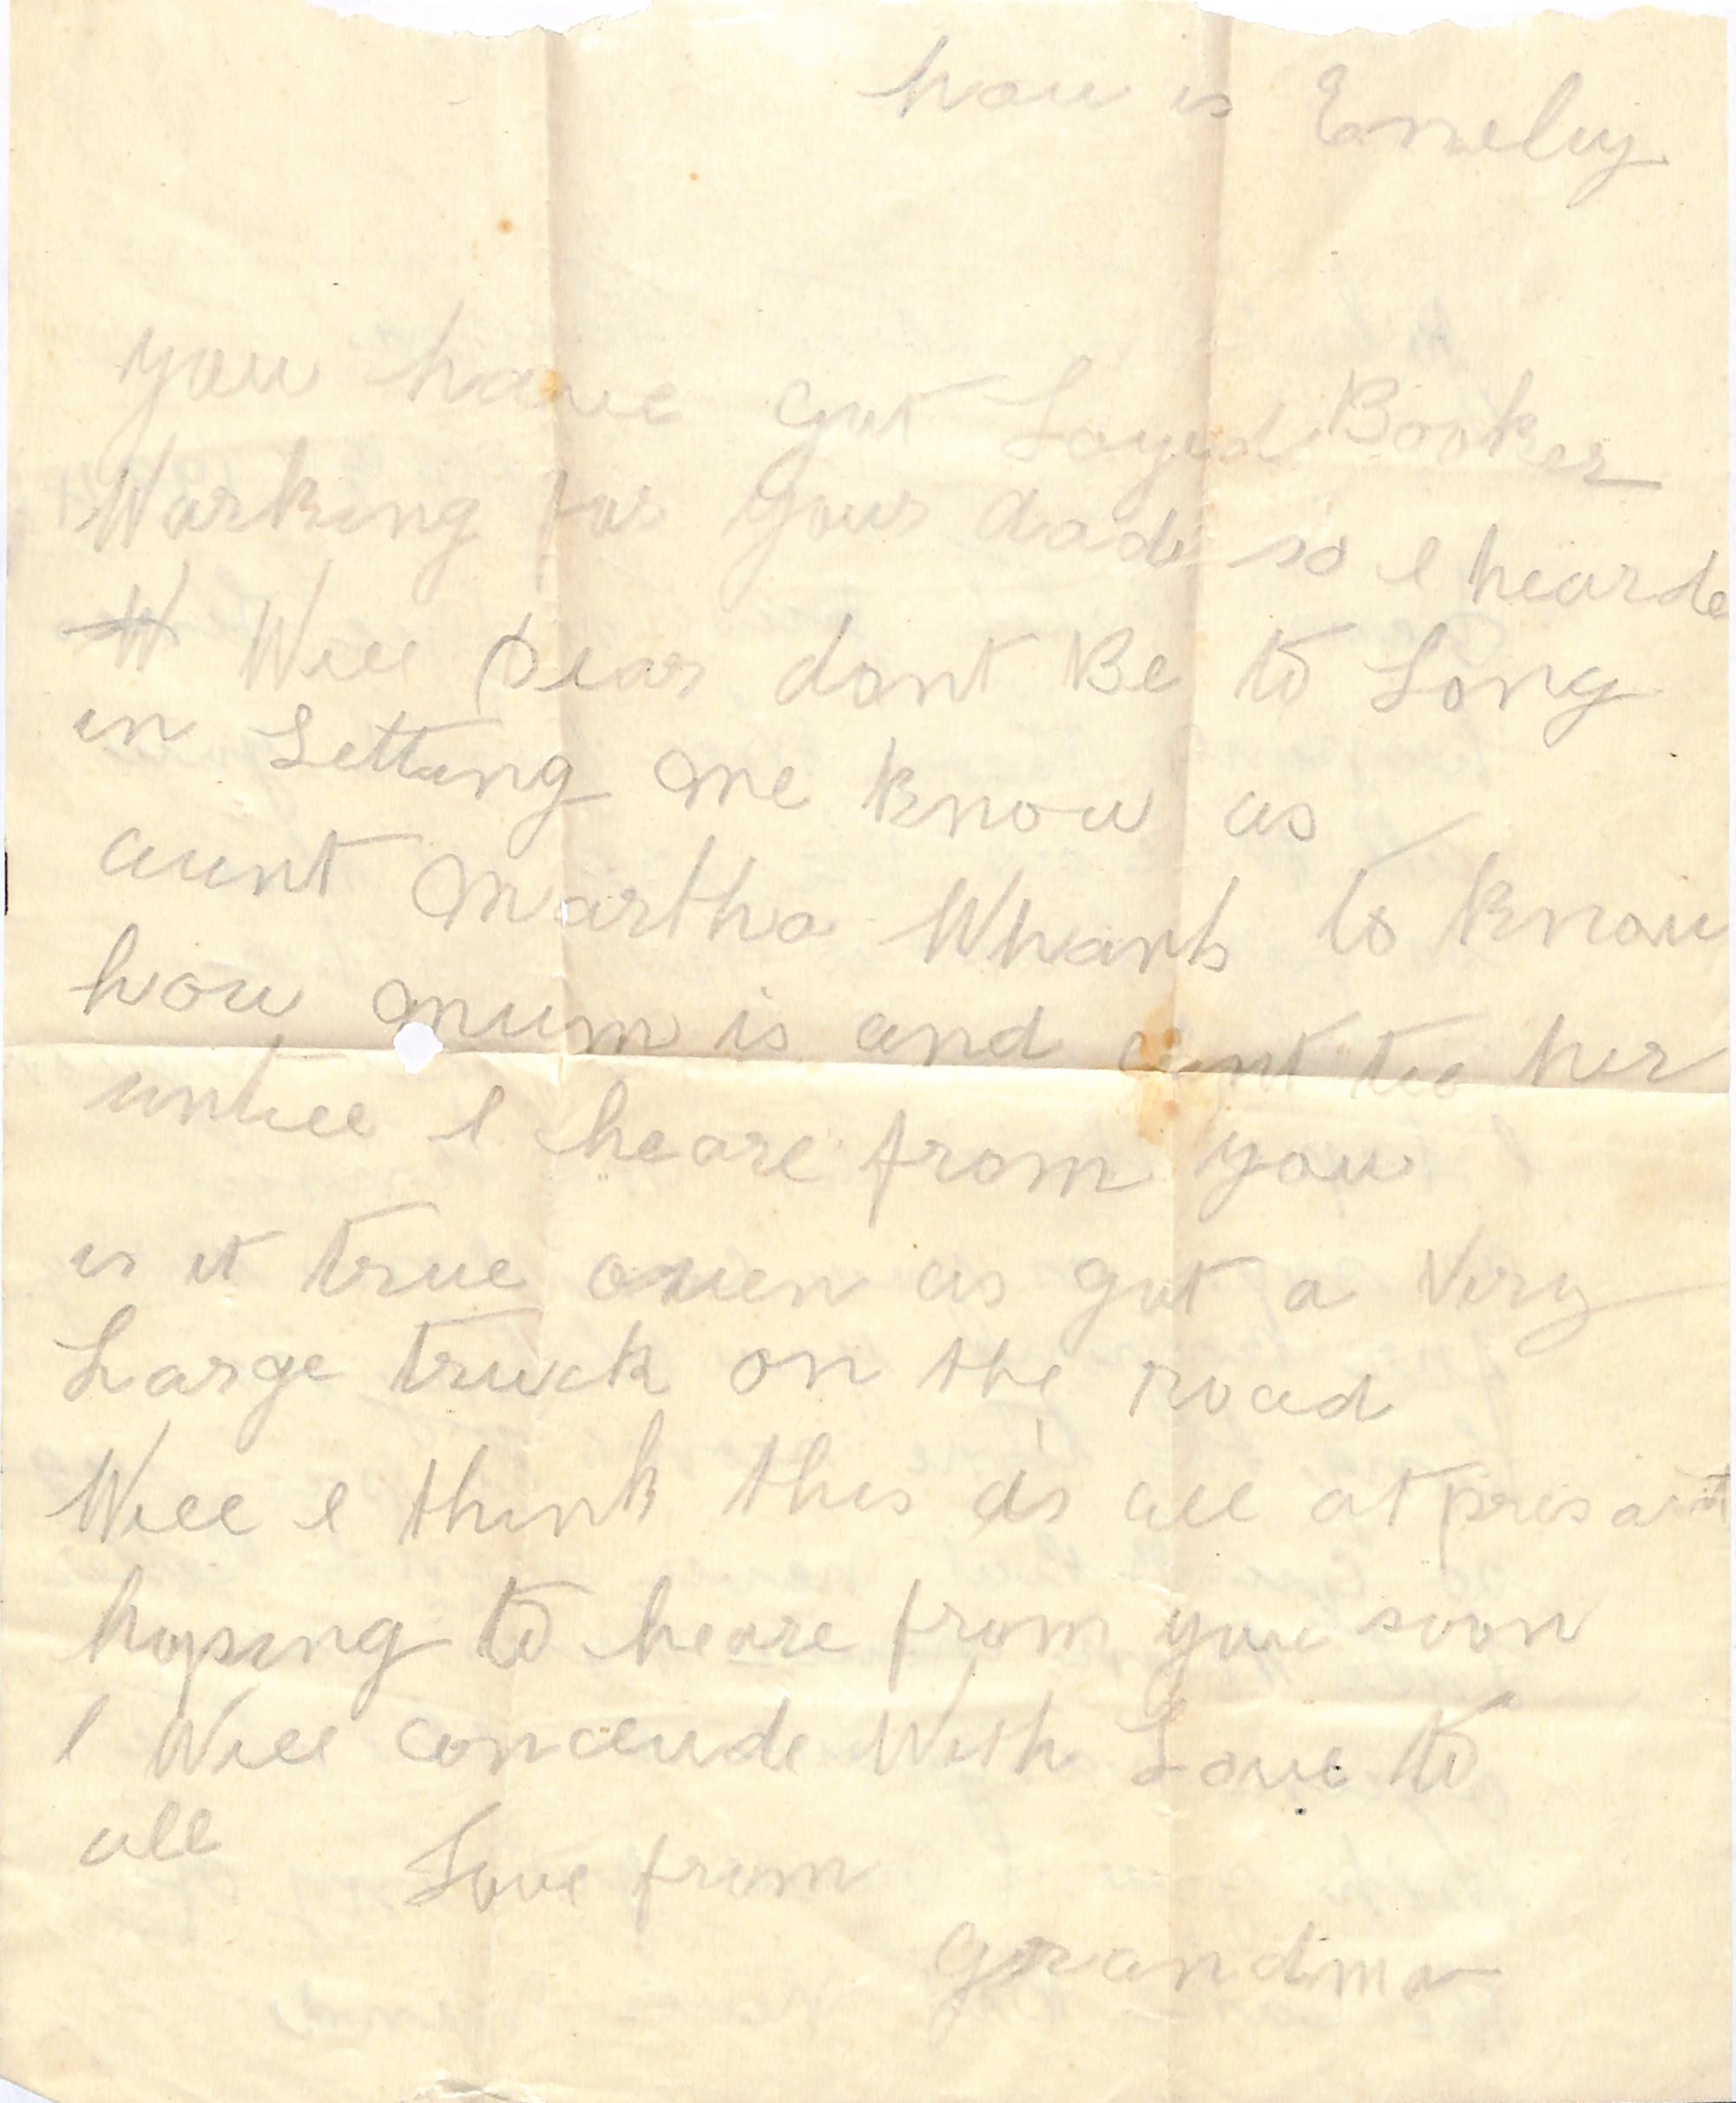 how is Emeley
you have got Loyed Booker
Working for your dad so I hearde
W Will Dear dont Be to Long
in Letting me know as
aunt Martha Whants to know
how mum is and cant tee her
untill I heare from you
is it true owen as got a Very
Large truck on the road
Will I think this is all at presant
hoping to heare from you soon
I Will conclude With Love to
all Love from
grandma